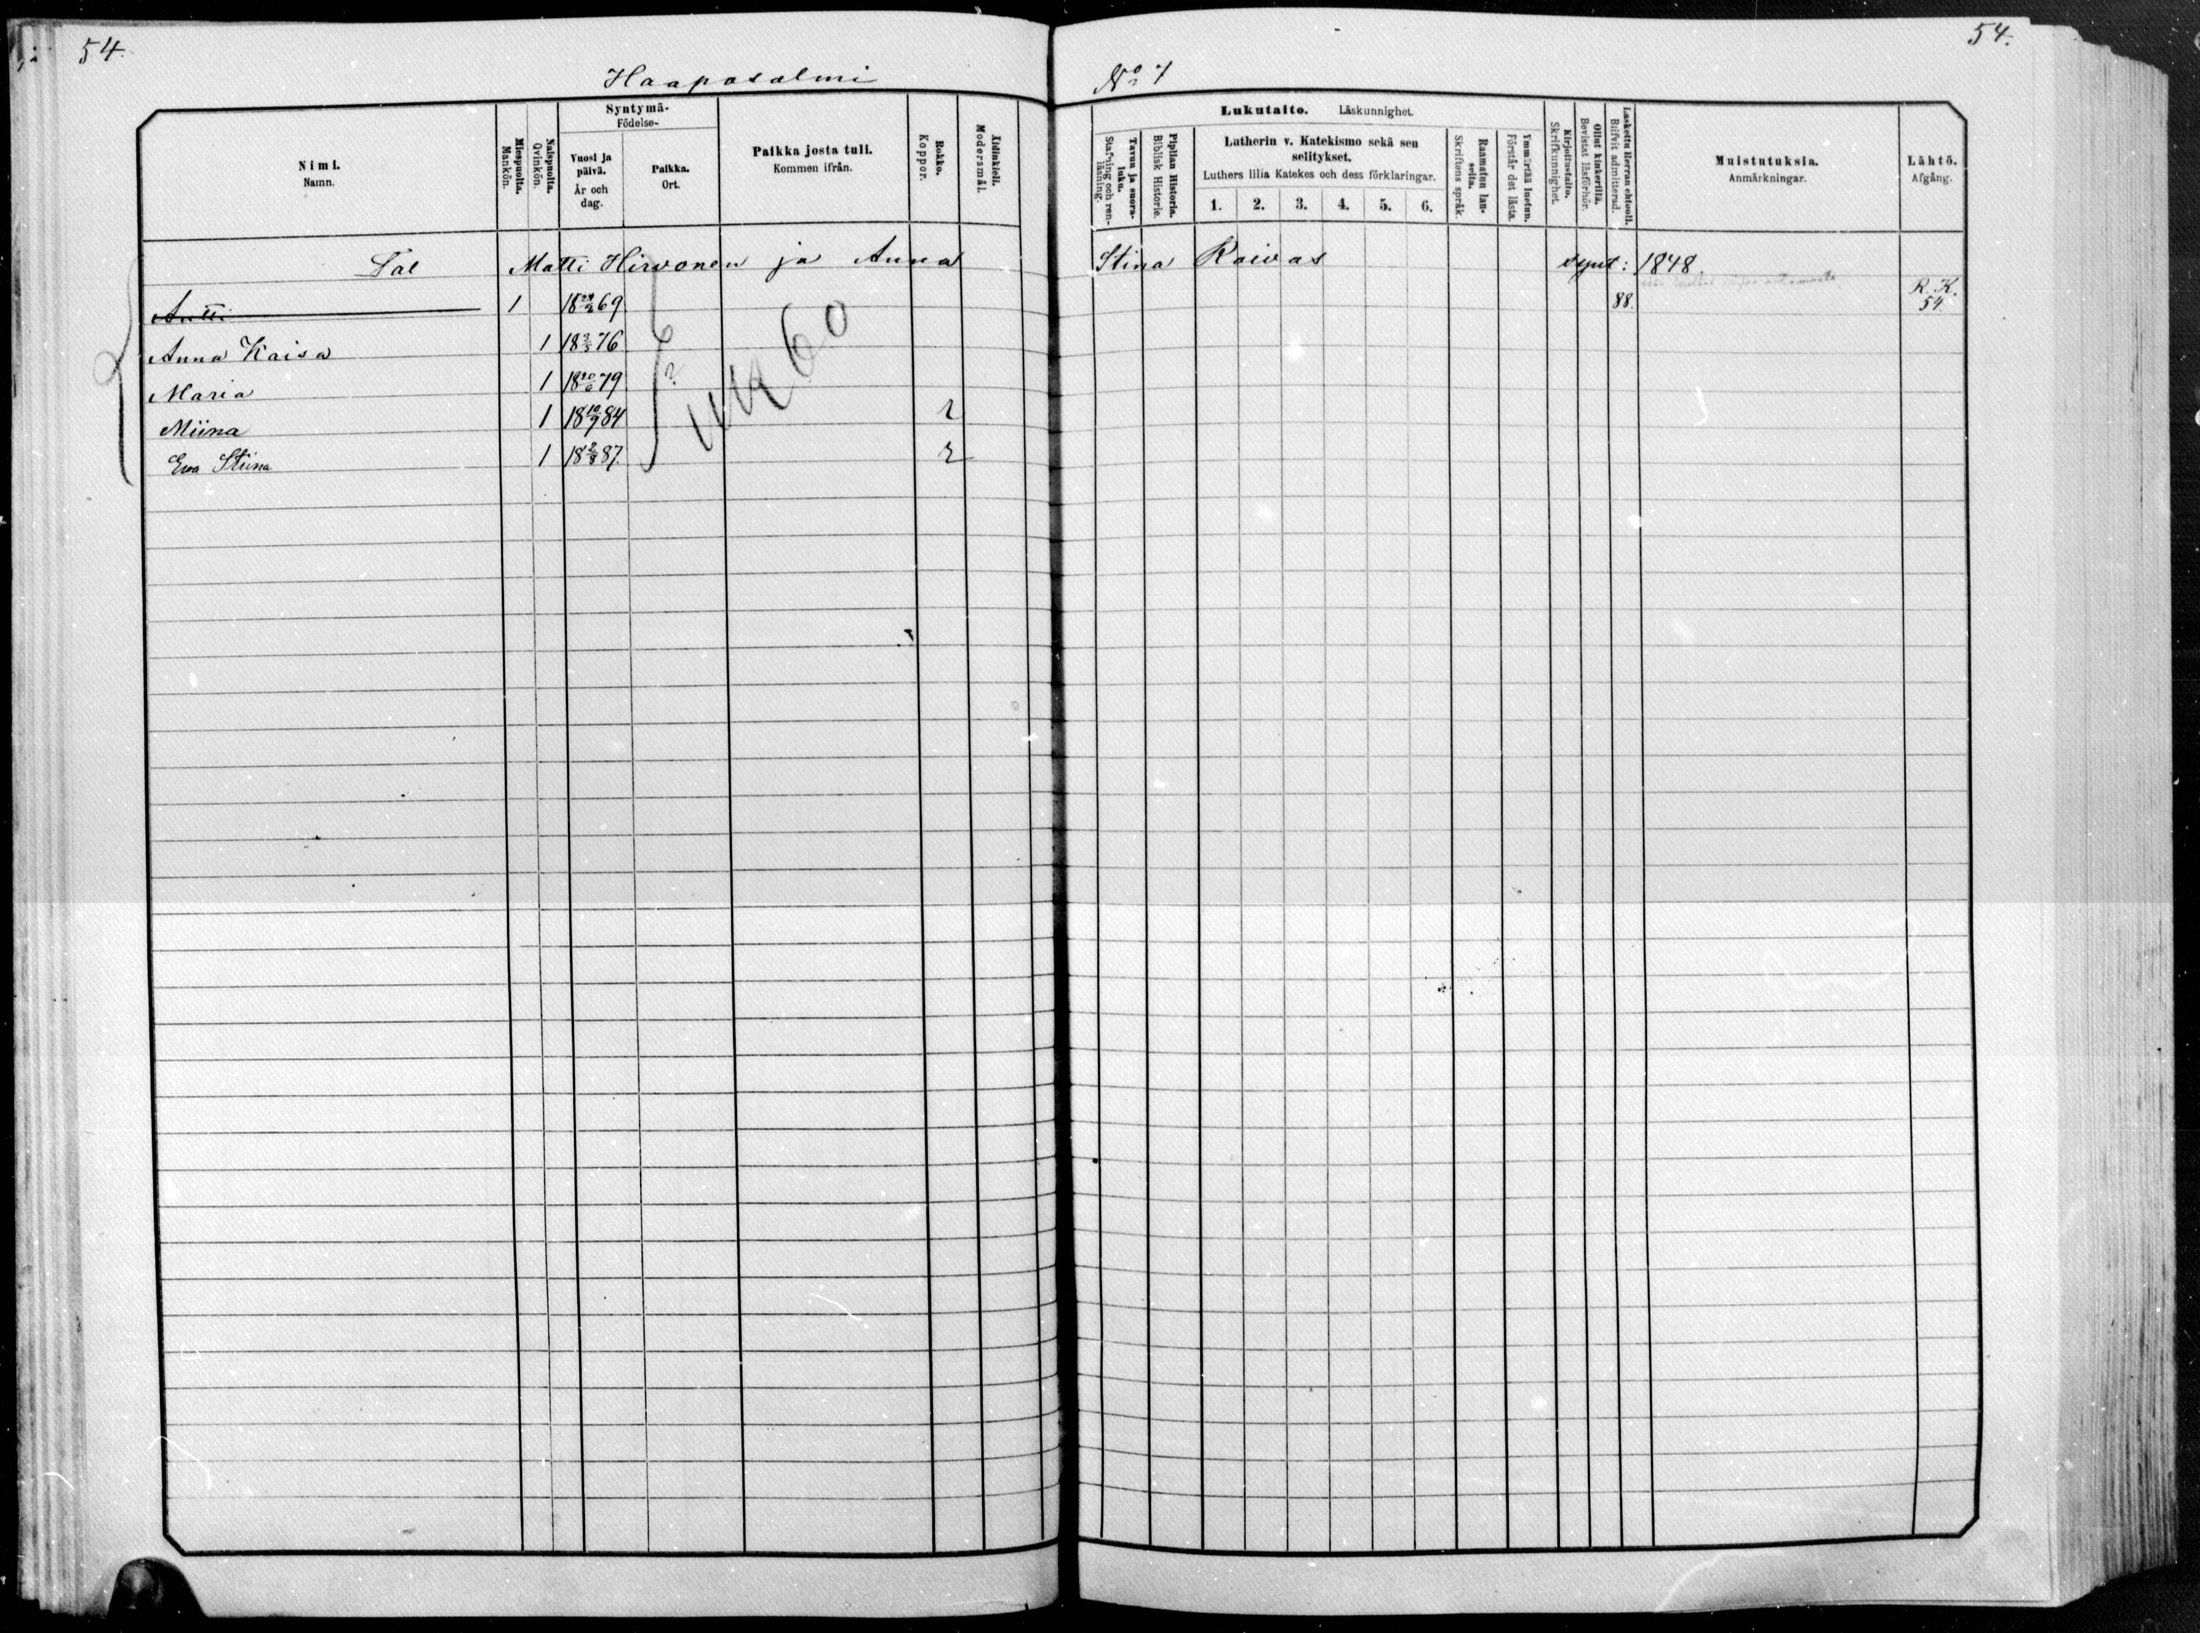 54.
54.
Haaposalmi No 7
Nimi.
Namn.
Miespuolta.
Mankön.
Naispuolta.
Qvinkön.
Syntymä-
Födelse-
Vuosi ja
päivä.
År och
dag.
Paikka.
Ort.
Paikka josta tuli.
Kommen ifrån.
Rokko.
Koppor.
Äidinkieli.
Modersmål.
Lukutaito. Läskunnighet.
Tavuu ja suora-
luku.
Stafning och ren-
läsning.
Piplian Historia.
Biblisk Historie.
Lutherin v. Katekismo sekä sen
selitykset.
Luthers lilla Katekes och dess förklaringar.
1. 2. 3. 4. 5. 6.
Raamatun lau-
seita.
Skriftens språk.
Ymmärtää luetun.
Förstår det lästa.
Kirjoitustaito.
Skrifkunnighet.
Ollut kinkerillä.
Bevistat läsförhör.
Laskettu Herran ehtooll.
Blifvit admitterad.
Muistutuksia.
Anmärkningar.
Lähtö.
Afgång.
Lal Matti Hirvonen ja Anna Stina Raivas synt: 1848.
Antti 1 18 69 88. R. K. 54.
Anna Kaisa 1 18 2/3 76
Maria 1 18 20/6 79 ?
Miina 1 18 10/9 84 r
Eva Stiina 1 18 87. r
UK 60